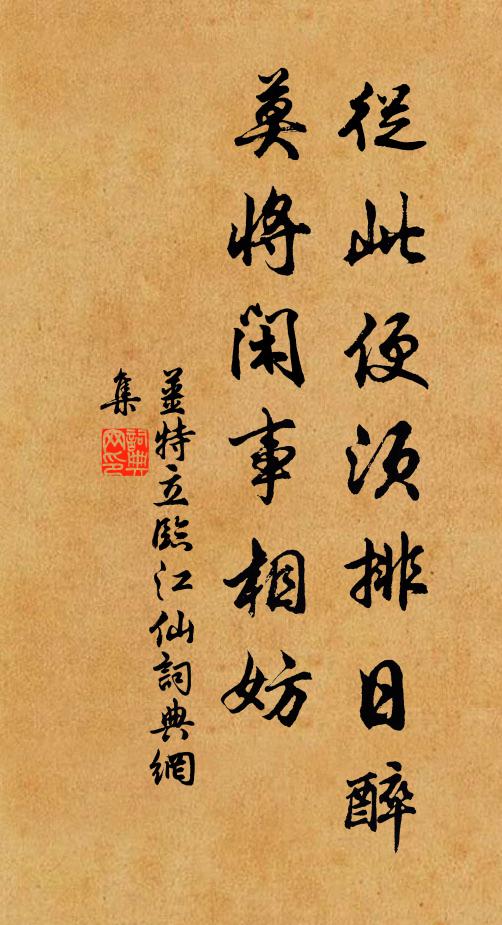 從此便須排日醉
莫將閑事相妨
姜特立臨江仙詞典網
集
詞典網印